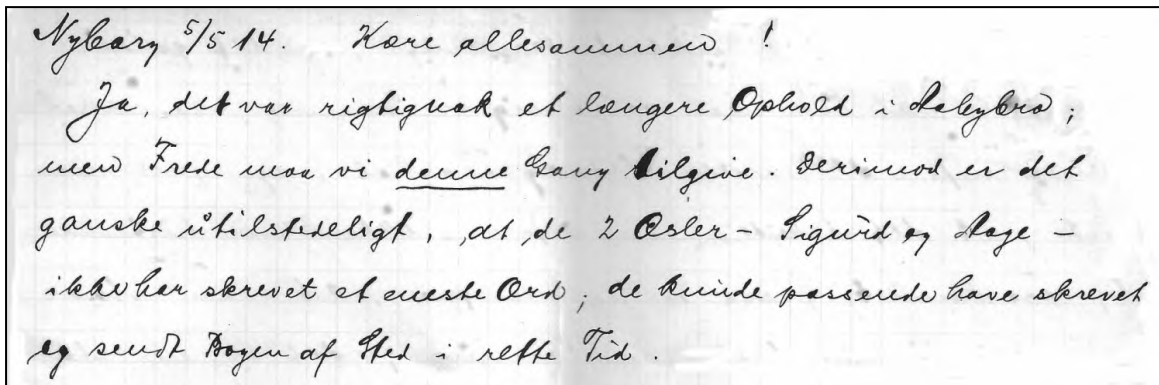 Nyborg 5/5 14. Kære allesammen !
Ja, det var rigtignok et længere Ophold i Aabybro ;
men Frede maa vi denne Gang tilgive. Derimod er det
ganske utilstedeligt, at de 2 Æsler - Sigurd og Aage -
ikke har skrevet et eneste Ord ; de kunde passende have skrevet
og sendt Bogen af Sted i rette Tid.